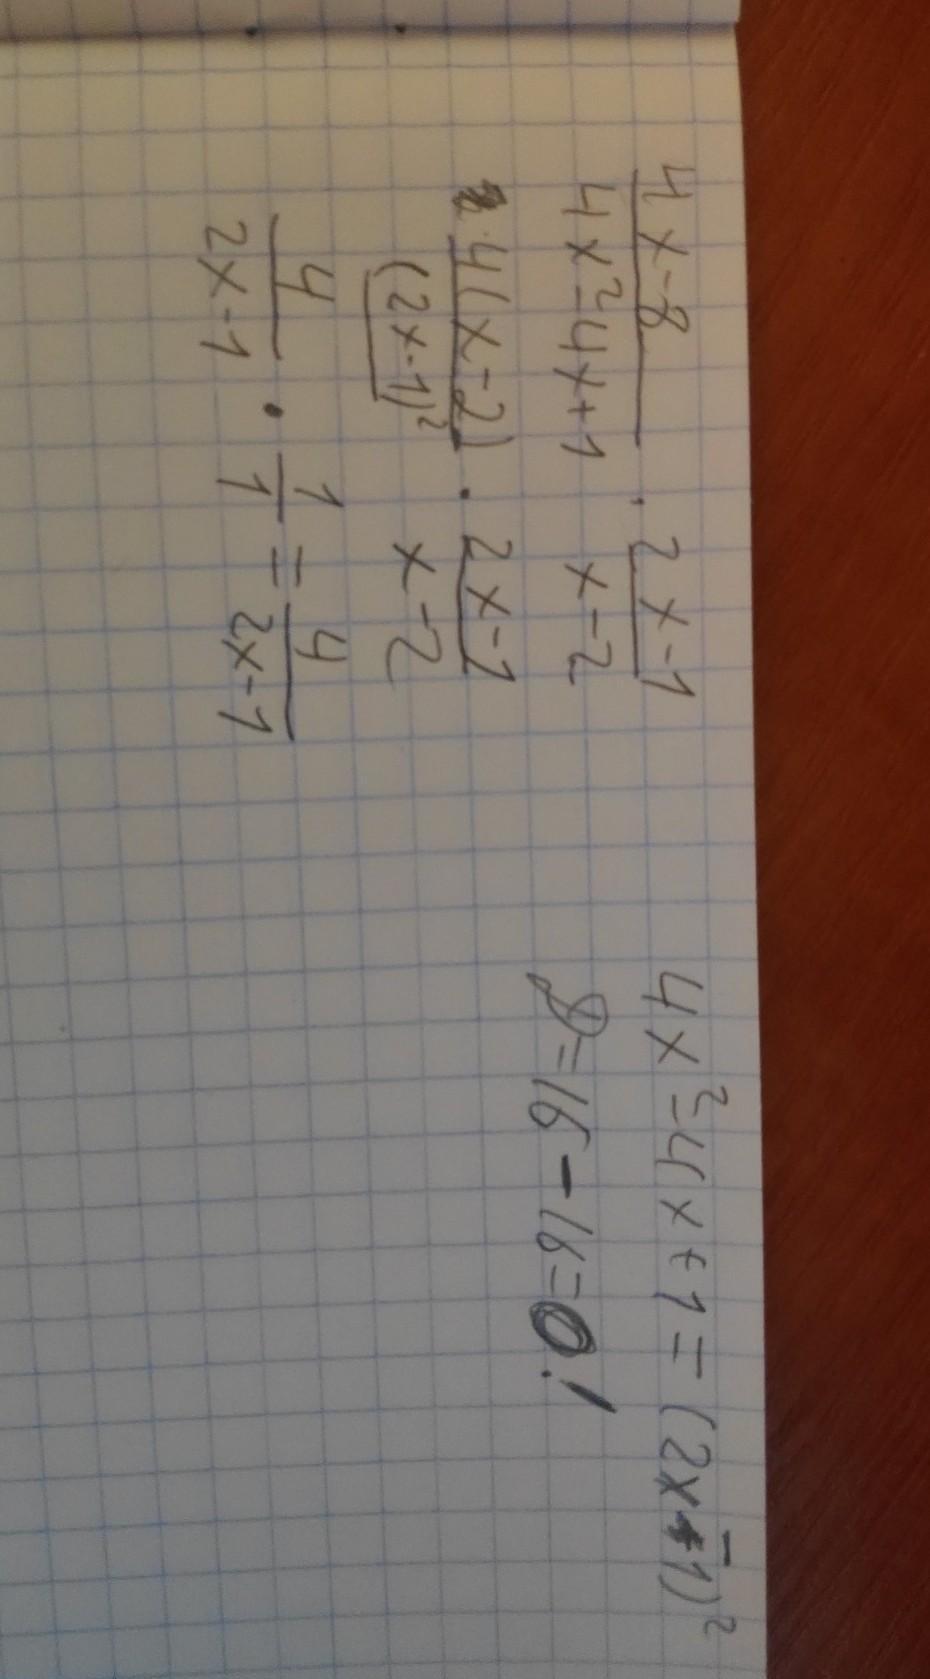 4x-8 / 4x²-4x+1 · 2x-1 / x-2
4(x-2) / (2x-1)² · 2x-1 / x-2
4 / 2x-1 · 1 / 1 = 4 / 2x-1
4x²-4x+1=(2x-1)²
D=16-16=0!